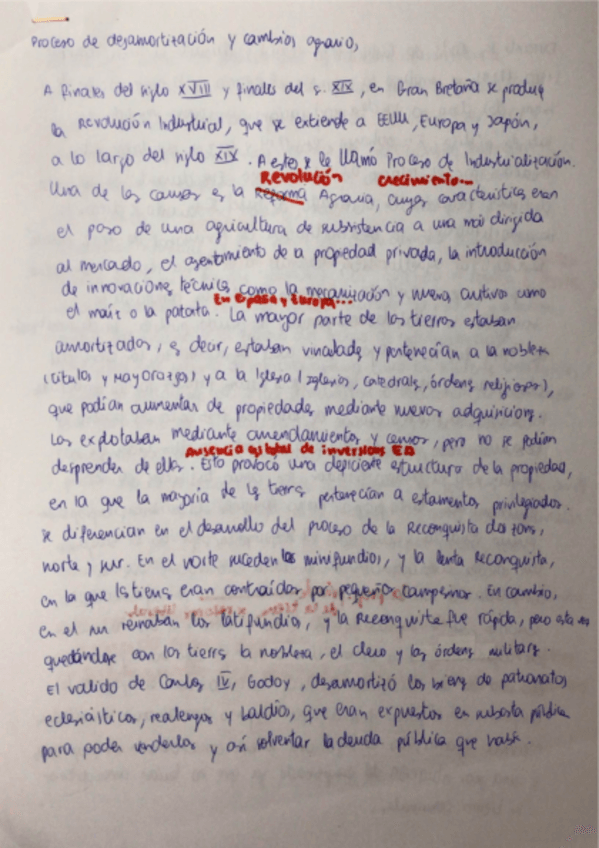 Proceso de desamortización y cambios agrarios
A finales del siglo XVIII y finales del s. XIX, en Gran Bretaña se produce
la Revolución Industrial, que se extiende a EEUU, Europa y Japón,
a lo largo del siglo XIX. A esto se le llamó Proceso de Industrialización.
Revolución crecimiento...
Una de las causas es la Reforma Agraria, cuyas características eran
el paso de una agricultura de subsistencia a una más dirigida
al mercado, el asentamiento de la propiedad privada, la introducción
de innovaciones técnicas como la mecanización y nuevos cultivos como
En España y Europa...
el maíz o la patata. La mayor parte de las tierras estaban
amortizadas, es decir, estaban vinculadas y pertenecían a la nobleza
(títulos y Mayorazgos) y a la Iglesia (Iglesias, catedrales, órdenes religiosas),
que podían aumentar de propiedades mediante nuevas adquisiciones.
Las explotaban mediante arrendamientos y censos, pero no se podían
Ausencia de inversions
desprender de ellas. Esto provocó una deficiente estructura de la propiedad,
en la que la mayoría de las tierras pertenecían a estamentos privilegiados.
Se diferencian en el desarrollo del proceso de la Reconquista dos zonas,
norte y sur. En el norte suceden los minifundios, y la lenta Reconquista,
en la que las tierras eran contraídas por pequeños campesinos. En cambio,
en el sur reinaban los latifundios, y la Reconquista fue rápida, pero esta vez
quedándose con las tierras la nobleza, el clero y las órdenes militares.
El valido de Carlos IV, Godoy, desamortizó los bienes de patronatos
eclesiásticos, realengos y baldíos, que eran expuestos en subasta pública
para poder venderlos y así solventar la deuda pública que había.